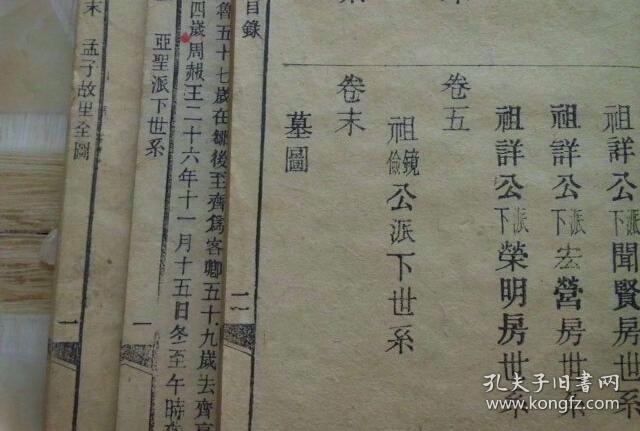 祖詳公派下聞賢房世系
祖詳公派下宏營房世系
祖詳公派下榮明房世系
卷五
祖鏡儉公派下世系
卷末
墓圖
目錄
二
魯五十七歲在鄒後至齊爲客卿五十九歲去齊
四歲周赧王二十六年十一月十五日冬至午時
亞聖派下世系
一
末 孟子故里全圖
一
孔夫子旧书网
www.kongfz.com